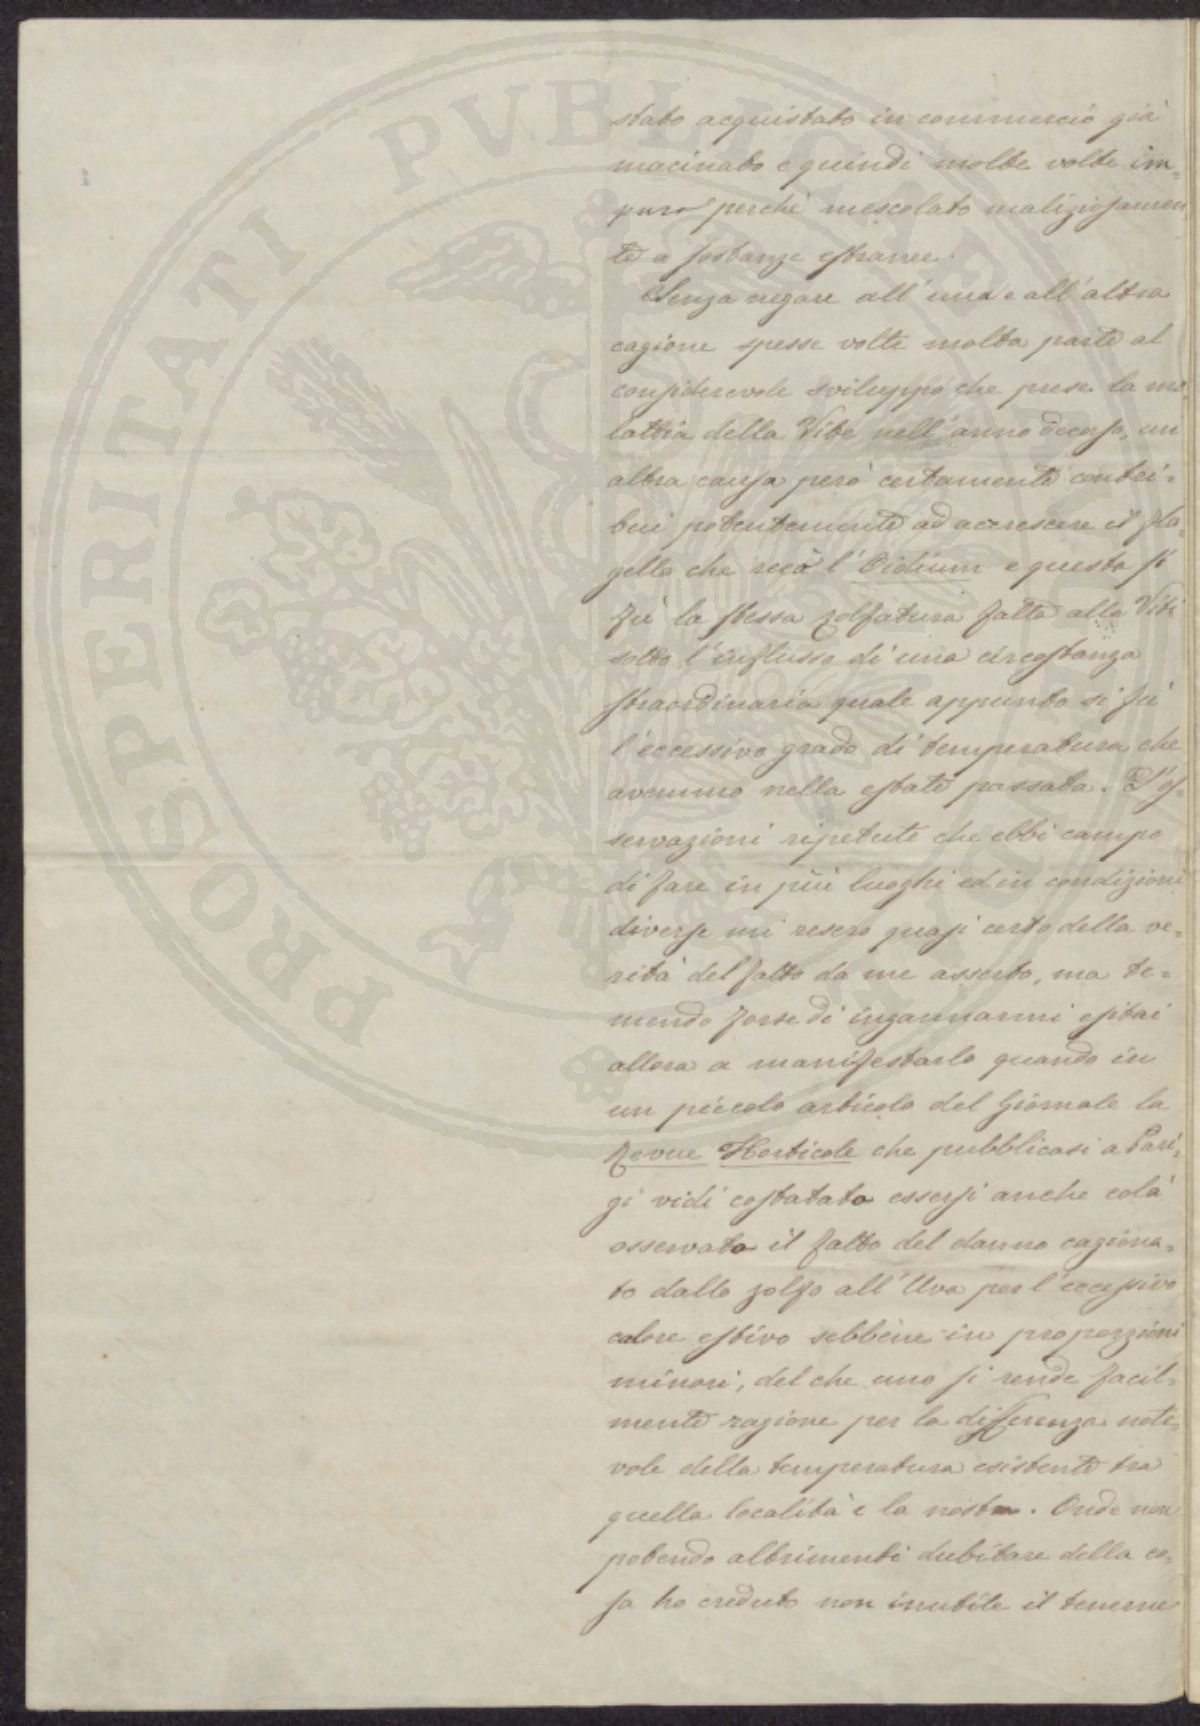 PROSPERITATI PVBLICAE AVGENDAE
stato acquistato in commercio già
macinato e quindi molte volte im=
puro perchè mescolato maliziosamen
te a sostanze estranee.
Senza negare all'una e all'altra
cagione spesse volte molta parte al
considerevole sviluppo che prese la ma
lattia della Vite nell'anno decorso, un
altra causa però certamente contri=
buì potentemente ad accrescere il fla=
gello che recò l'Oidium e questa si
fù la stessa zolfatura fatta alle Viti
sotto l'influsso di una circostanza
straordinaria quale appunto si fù
l'eccessivo grado di temperatura che
avemmo nella estate passata. L'os=
servazioni ripetute che ebbi campo
di fare in più luoghi ed in condizioni
diverse mi resero quasi certo della ve=
rità del fatto da me asserto, ma te=
mendo forse di ingannarmi esitai
allora a manifestarlo quando in
un piccolo articolo del Giornale la
Revue Horticole che pubblicasi a Pari=
gi vidi costatato essersi anche colà
osservato il fatto del danno cagiona=
to dallo zolfo all'Uva per l'eccessivo
calore estivo sebbene in proporzioni
minori, del che uno si rende facil=
mente ragione per la differenza note=
vole della temperatura esistente tra
quella località e la nostra. Onde non
potendo altrimenti dubitare della co=
sa ho creduto non inutile il tenerne